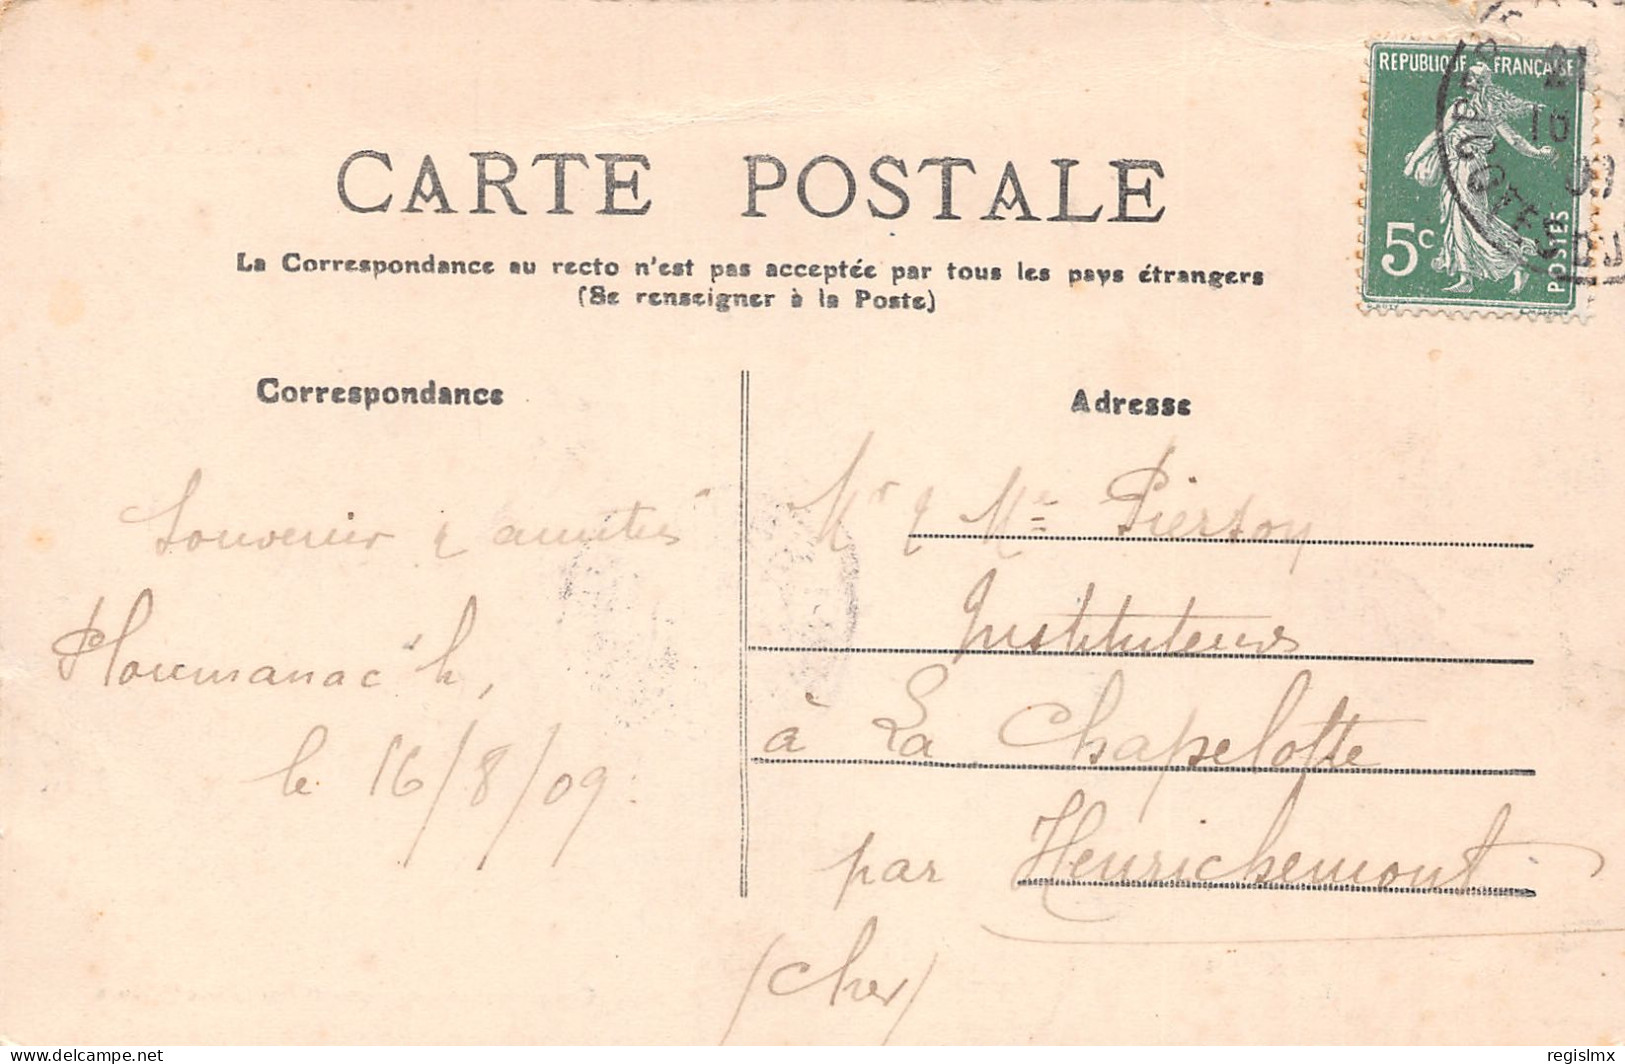 REPUBLIQUE FRANÇAISE
5c
POSTES
21
16
09
COTES DU
CARTE POSTALE
La Correspondance au recto n'est pas acceptée par tous les pays étrangers
(Se renseigner à la Poste)
Correspondance
Souvenir & amitiés
Ploumanac'h,
le 16/8/09.
Adresse
Mr & Me Pierson
Instituteurs
à La Chapelotte
par Henrichemont
(Cher)
delcampe.net
regislmx